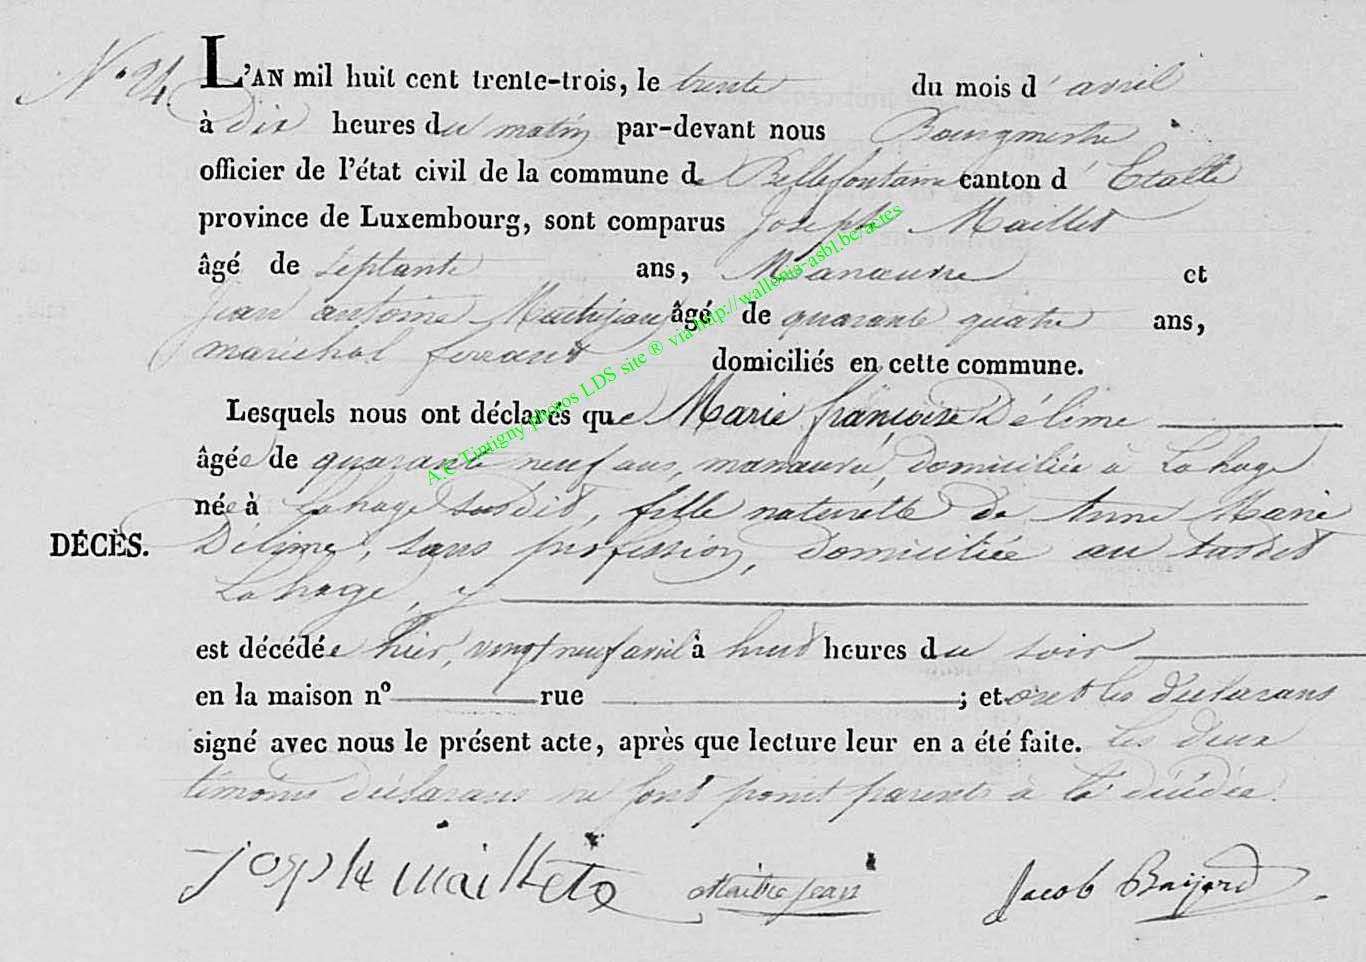 N° 24 L'AN mil huit cent trente-trois, le trente du mois d'avril
à dix heures du matin par-devant nous Bourgmestre
officier de l'état civil de la commune de Bellefontaine canton d'Etalle
province de Luxembourg, sont comparus Joseph Maillet
âgé de septante ans, Manœuvre et
Jean antoine âgé de quarante quatre ans,
maréchal ferrant domiciliés en cette commune.
Lesquels nous ont déclarés que Marie françoise Délime
âgée de quarante neuf ans, manœuvre, domiciliée à Lahage
née à Lahage susdit, fille naturelle de Anne Marie
DÉCÈS. Délime, sans profession, domiciliée au susdit
Lahage,
est décédée hier, vingt neuf avril à huit heures du soir
en la maison n° rue ; et ont les déclarans
signé avec nous le présent acte, après que lecture leur en a été faite. Les deux
témoins déclarans ne sont point parents à la décédée.
Josple Mailleto Maitrejean Jacob Baijard
A.C Tintigny photos LDS site ® via http://wallonia-asbl.be/actes